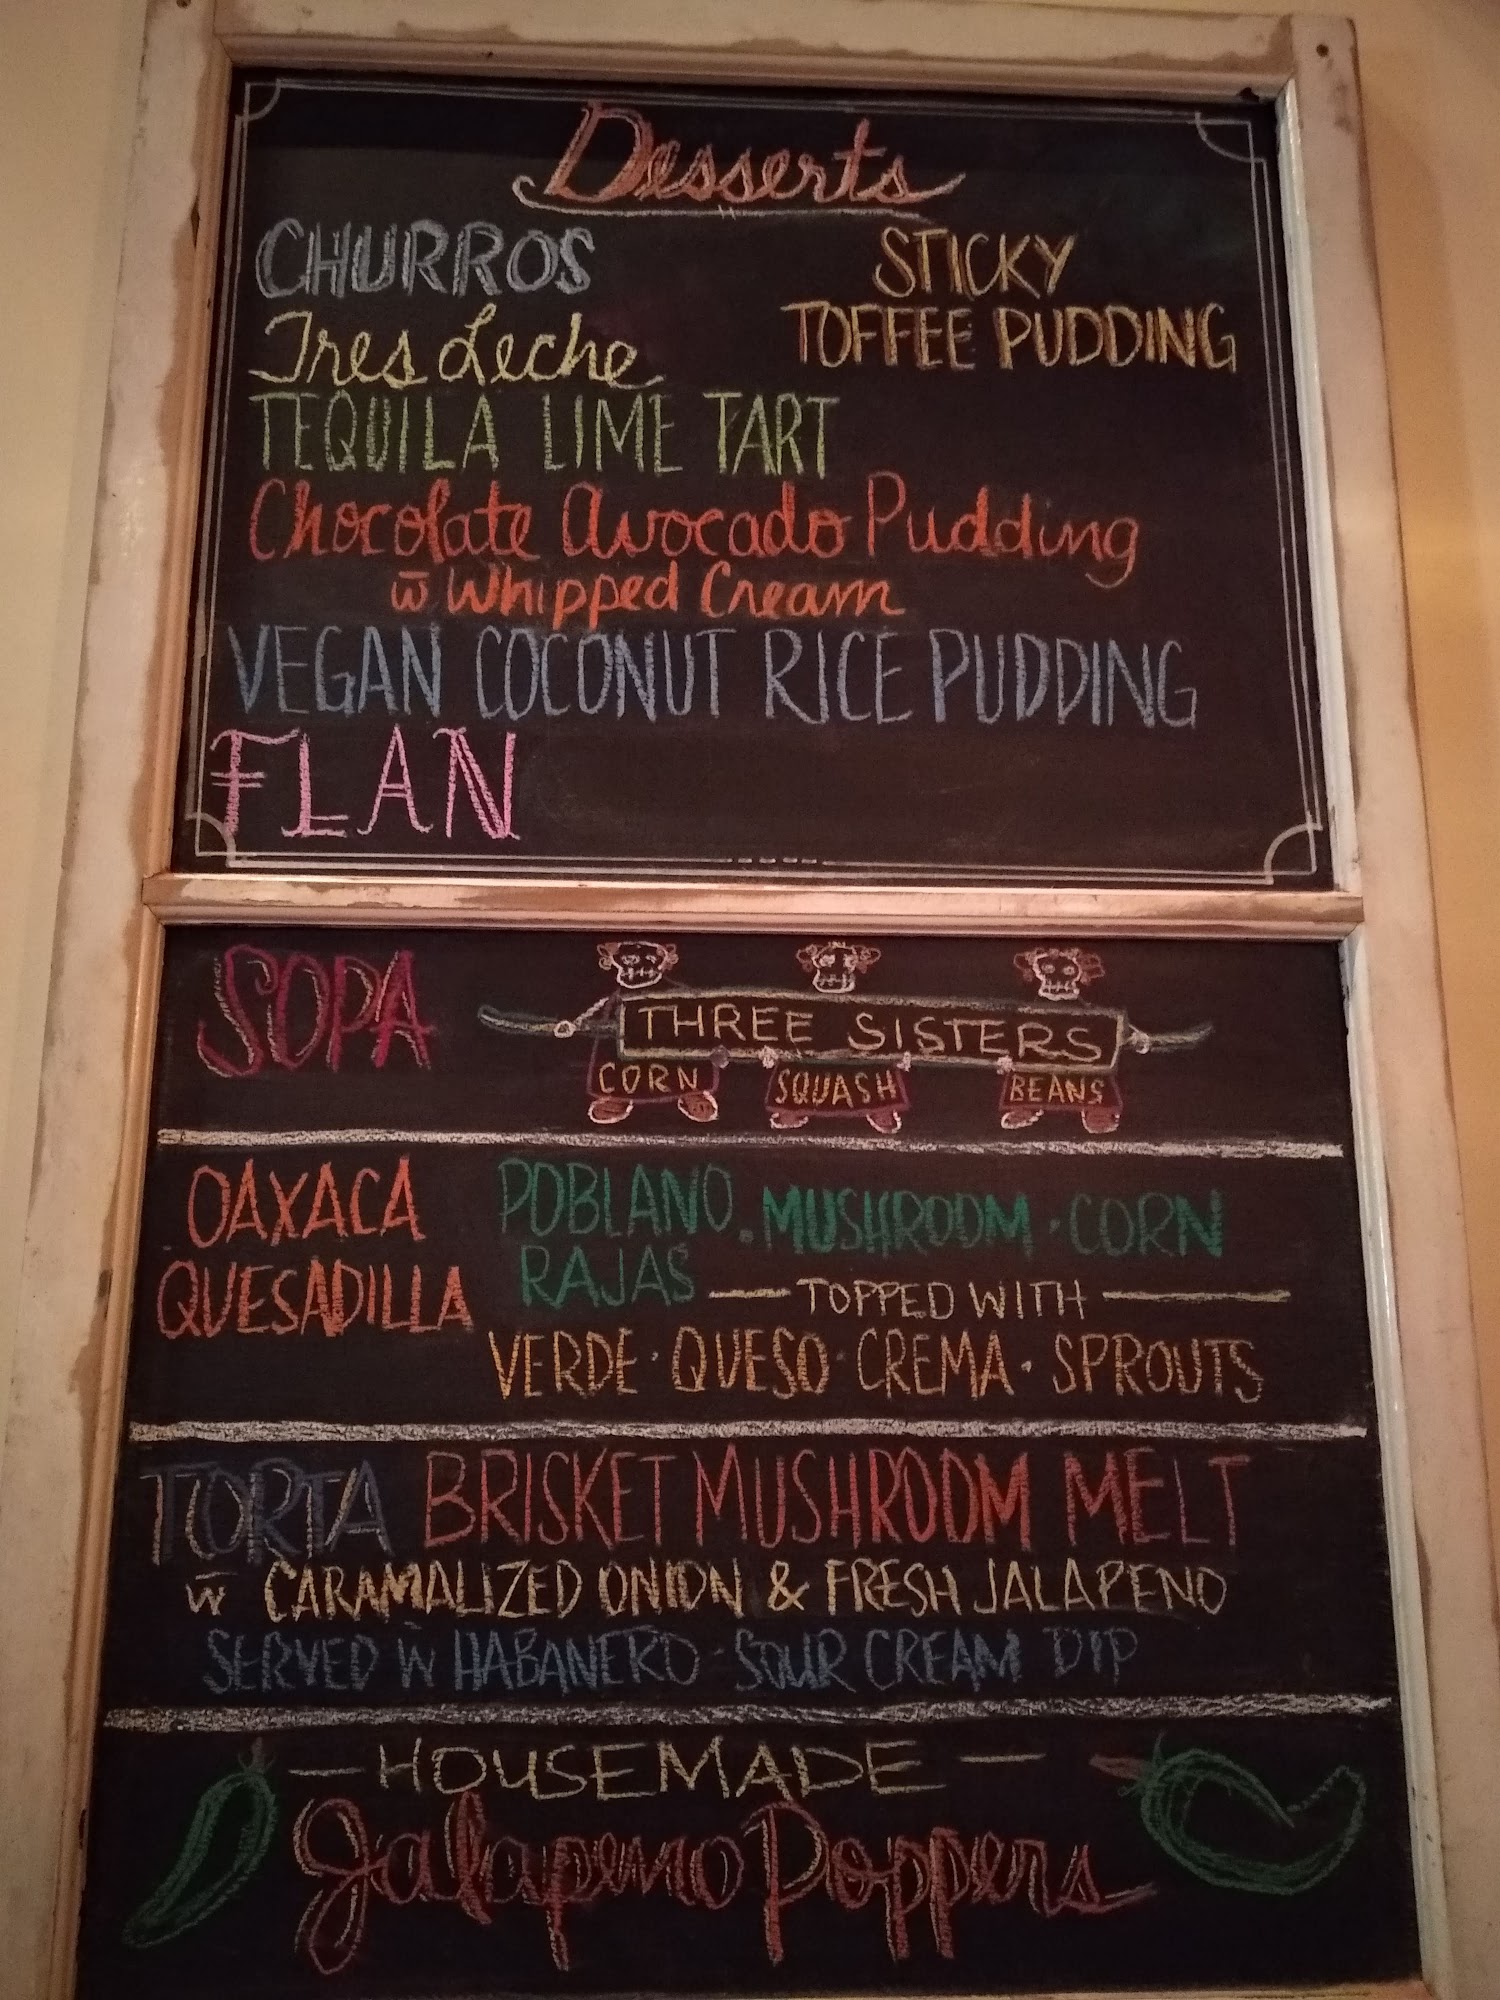 Desserts
CHURROS
STICKY
TOFFEE PUDDING
Tres Leche
TEQUILA LIME TART
Chocolate Avocado Pudding
w̄ Whipped Cream
VEGAN COCONUT RICE PUDDING
FLAN
SOPA
THREE SISTERS
CORN SQUASH BEANS
OAXACA
QUESADILLA
POBLANO · MUSHROOM · CORN
RAJAS
— TOPPED WITH —
VERDE · QUESO · CREMA · SPROUTS
TORTA BRISKET MUSHROOM MELT
w̄ CARAMALIZED ONION & FRESH JALAPENO
SERVED w̄ HABANERO · SOUR CREAM DIP
— HOUSEMADE —
Jalapeno Poppers